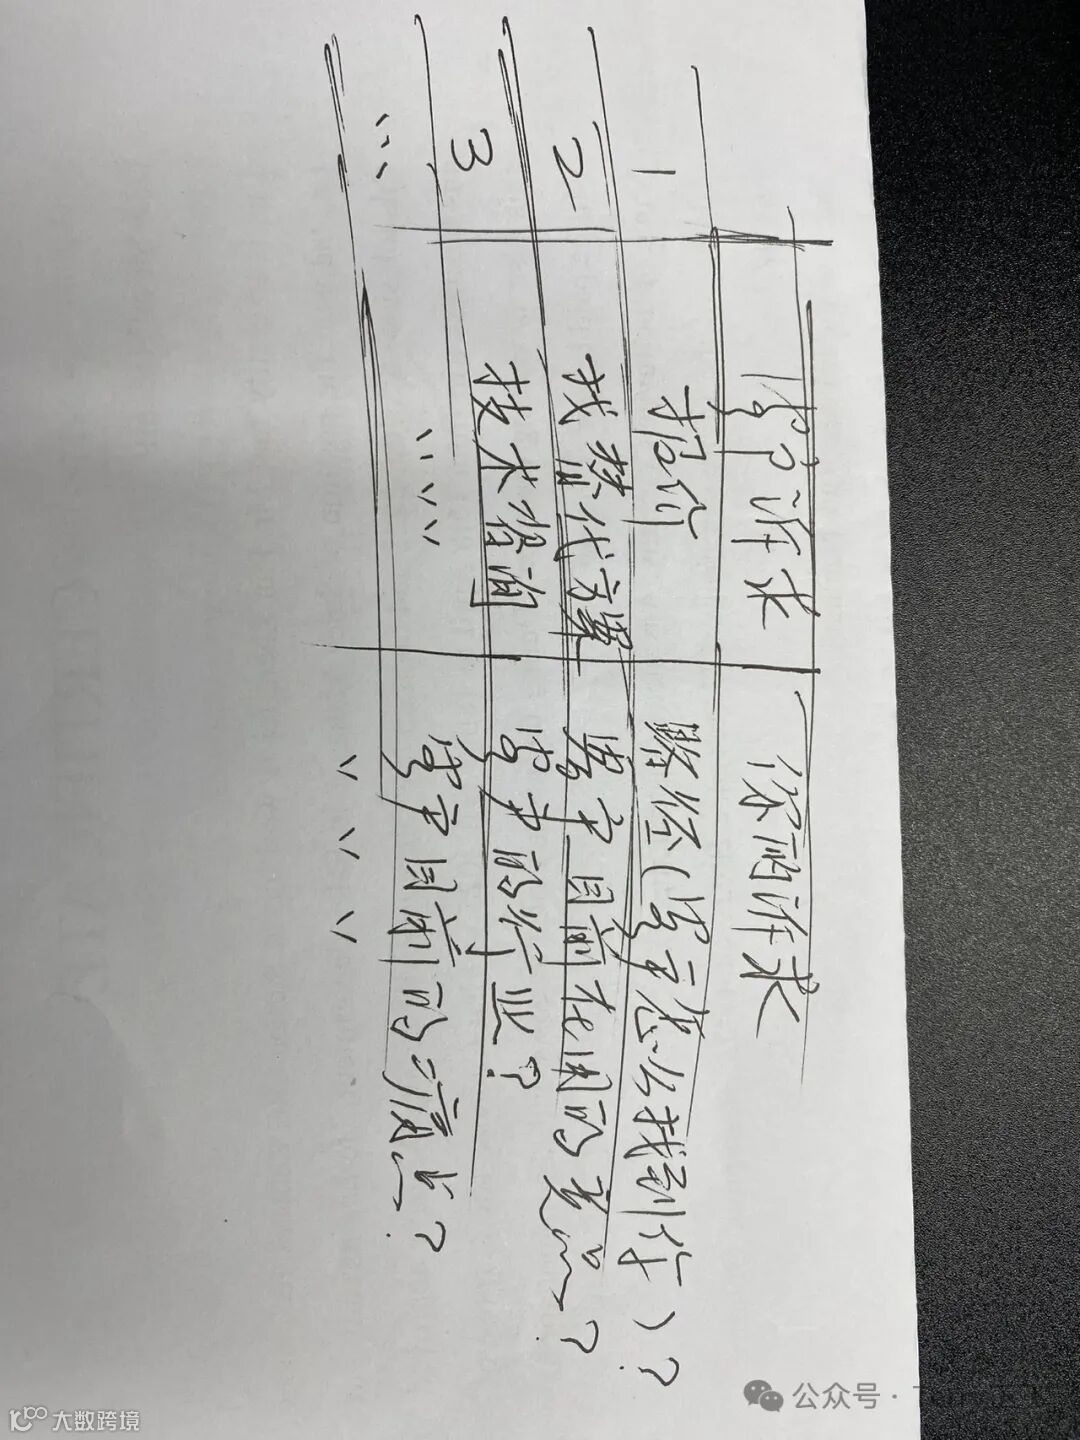 客户诉求 你的诉求
1 报价 路径(客户怎么找到你)?
2 找替代方案 客户目前在用的?
3 技术咨询 客户的行业?
... .... 客户目前的痛点?
...
公众号·
大数跨境